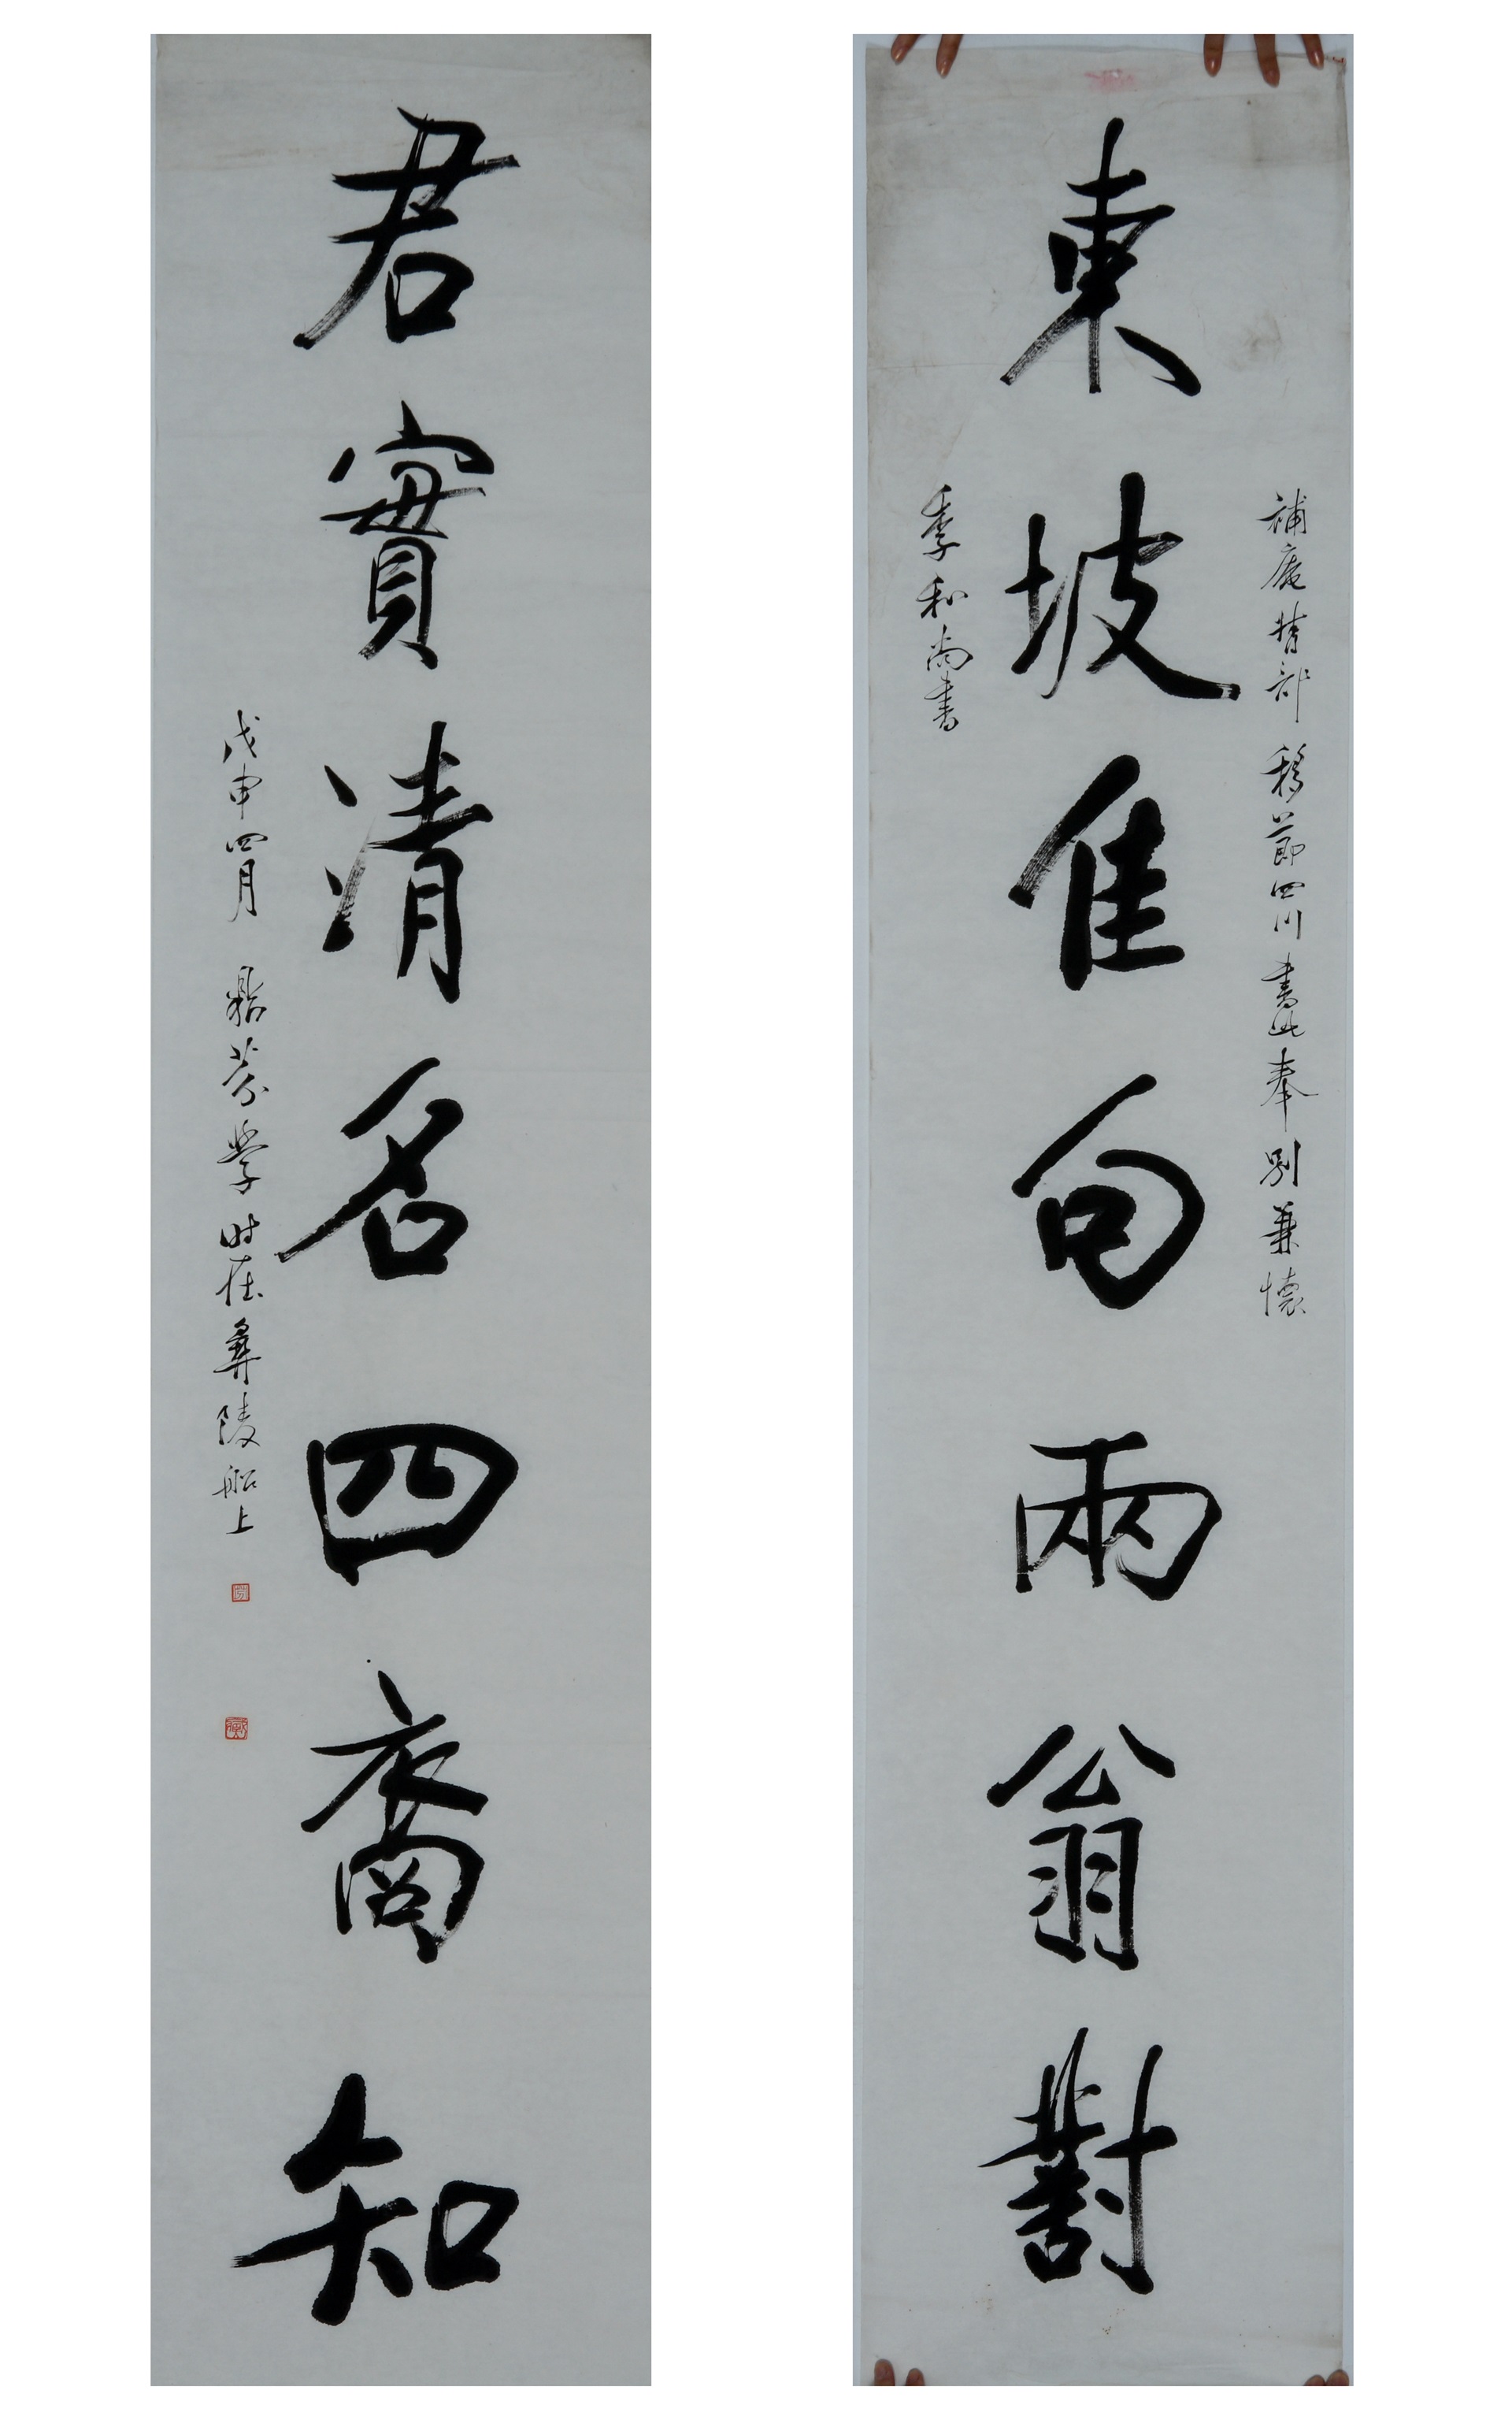 補庵督部移節四川書此奉別兼懷
東坡佳句兩翁對
季和尚書
君實清名四裔知
戊申四月鼎芬學時在彝陵船上